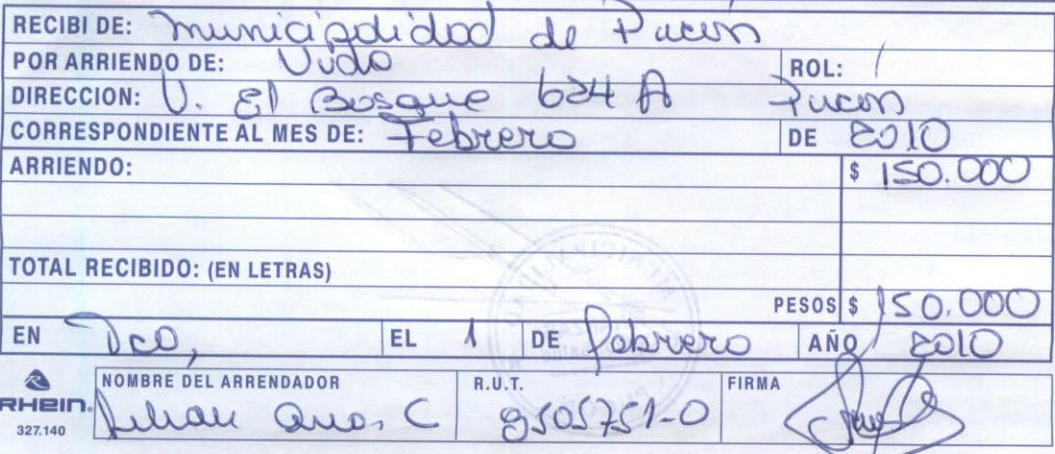 RECIBI DE: Municipalidad de Pucón
POR ARRIENDO DE: Vvda ROL: /
DIRECCION: V. El Bosque 624 A Pucón
CORRESPONDIENTE AL MES DE: Febrero DE 2010
ARRIENDO: $ 150.000
TOTAL RECIBIDO: (EN LETRAS)
PESOS $ 150.000
EN Tco, EL 1 DE Febrero AÑO 2010
NOMBRE DEL ARRENDADOR R.U.T. FIRMA
RHEIN. C 9505751-0
327.140